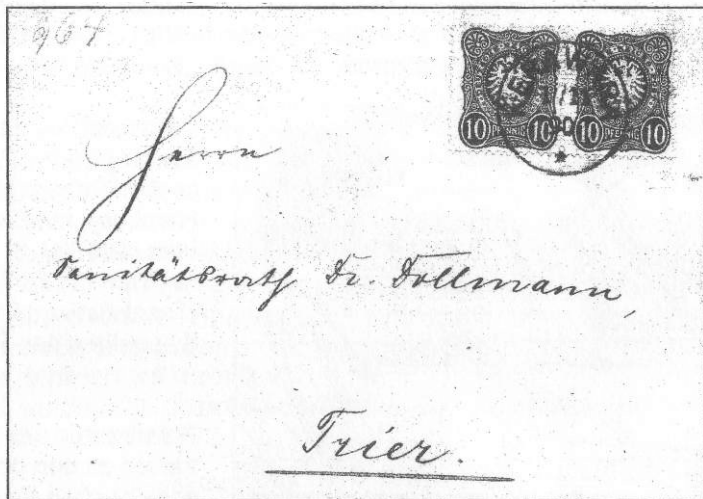 964
10 PFENNIG 10 10 PFENNIG 10
Herrn
Sanitätsrath Dr. Dollmann,
Trier.